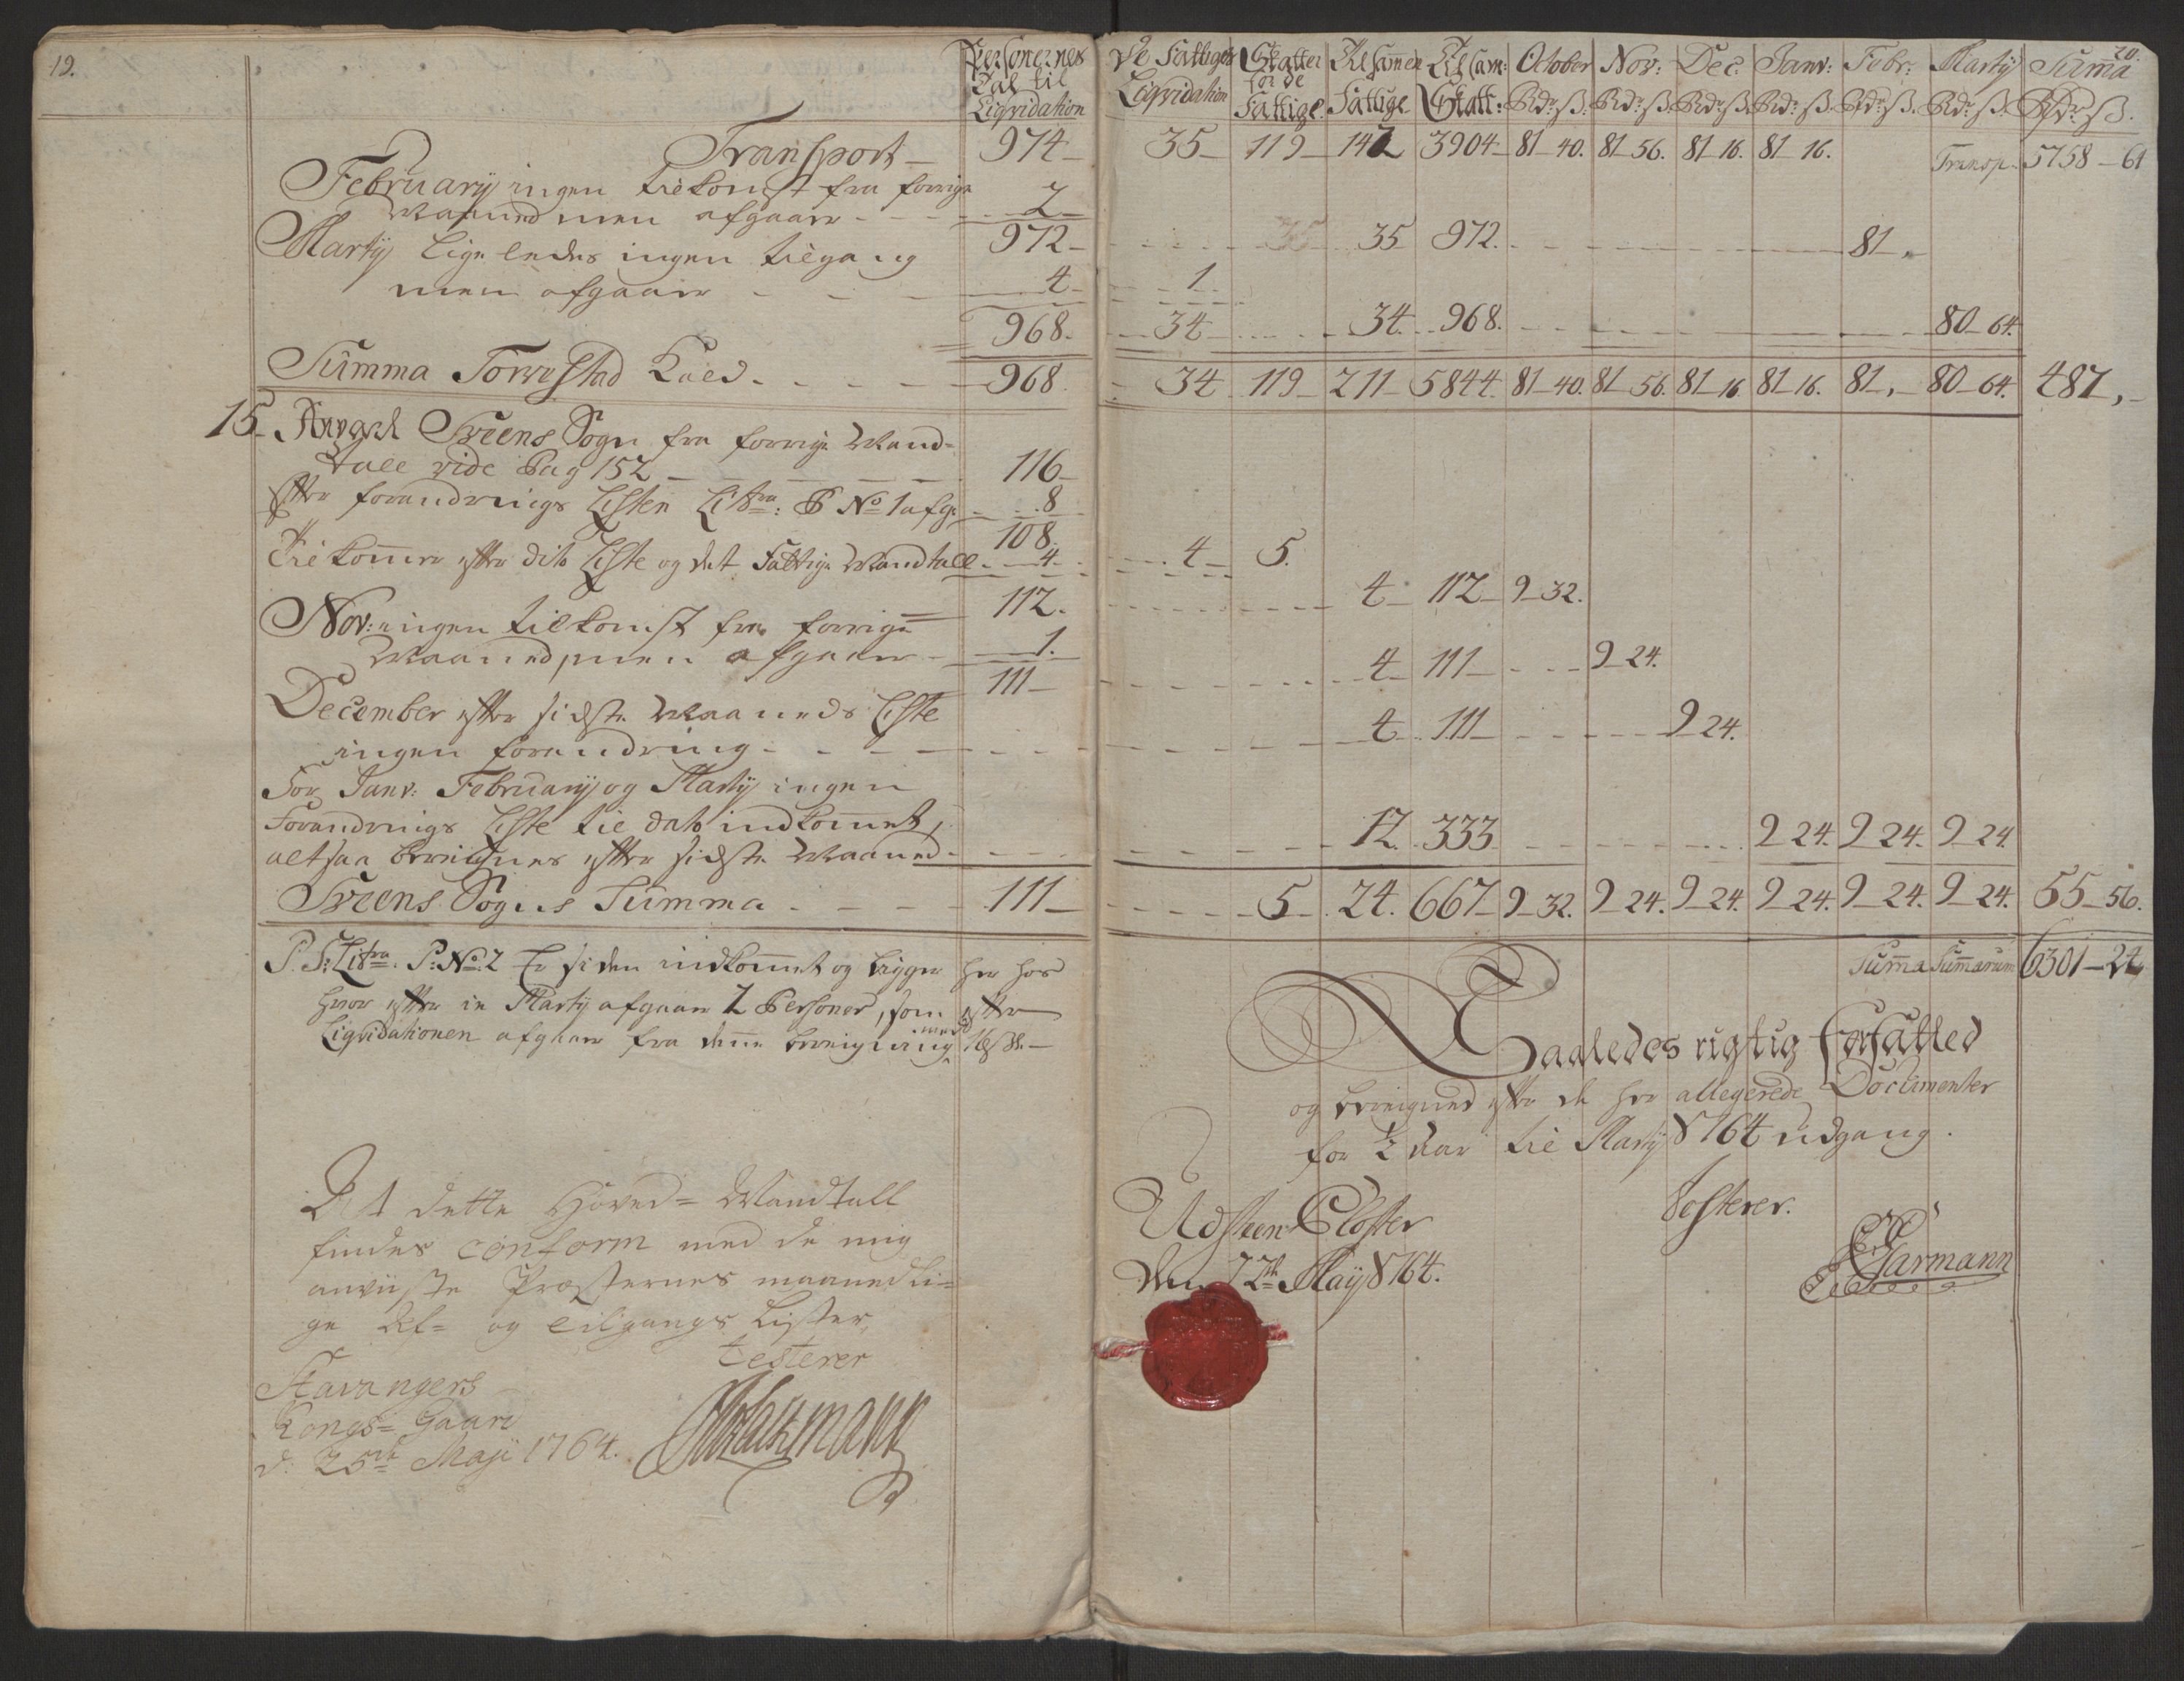 19.
Personernes
Tal til
Liqvidation
Transport — 974 —
February ingen tilkomst fra forrige
Maaned men afgaaer - - - 2 —
972 —
Marty ligeledes ingen tilgang
men afgaaer - - - 4 —
968.
Summa Torvestad Kald - - - 968.
15. Avgard Sveens Sogn fra forrige Mand-
tall vide Pag 152 - - - 116 —
efter forandrings Listen Litra: P No 1 afg: - - 8
108.
Tilkommer efter dito Liste og det Fattige Mandtall - - 4 -
112.
Nov: ingen tilkomst fra forrige
Maaned, men afgaaer - - 1.
111 —
December efter sidste Maaneds Liste
ingen forandring - - -
For Janv: February og Marty ingen
Forandrings Liste til dato indkommet,
altsaa beregnes efter sidste Maaned - - -
Sveens Sogns Summa - - - 111 —
P. S: Litra. P: No: 2 Er siden indkommet og ligger her hos
hvor efter in Marty afgaaer 2 Personer, som efter
Liqvidationen afgaaer fra denne beregning med 16 s. —
At dette Hoved- Mandtall
findes conform med de mig
anviiste Præsternes maanedli-
ge Af- og Tilgangs Lister,
testerer
Stavangers
Kongs- Gaard
d. 25de Maji 1764.
20.
De Fattiges Liqvidation
Skatter for de Fattige
Tilsamen Fattige
Tilsam: Skatt:
October Rdr. ß.
Nov: Rdr. ß.
Dec: Rdr. ß.
Janv: Rdr. ß.
Febr: Rdr. ß.
Marty Rdr. ß.
Summa Rdr. ß.
35 — 119 — 142 3904 — 81 — 40. 81 56. 81 16. 81 — 16. Transp. 5758 — 61
35 35 972. - - - 81 „
1.
34 - - - 34. 968. - - - 80 — 64.
34 119 — 211 — 5844. 81 — 40. 81 — 56. 81 — 16 81 — 16. 81 „ — 80 — 64. 487 „ —
4 — 5.
4 — 112 — 9 — 32.
4 — 111 — - - 9 — 24.
4 — 111 — - - - 9 24.
12. 333. - - - 9 24. 9 24. 9 24
5 — 24. 667 — 9 — 32. 9 — 24. 9 — 24. 9 — 24. 9 — 24. 9 — 24. 55 — 56.
Summa Summarum 6301 — 24
Saaledes rigtig forfatted
og beregned efter de her allegerede Documenter
for ½ Aar til Marty 1764 udgang.
Udsteen Closter
den 12te Maij 1764.
Testerer.
Garmann